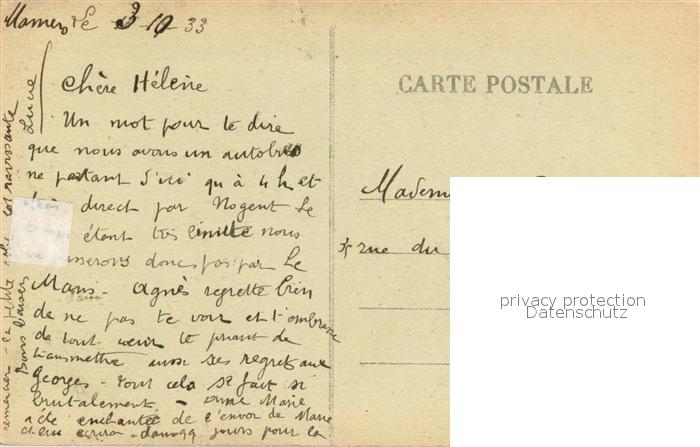 Mamers le 3-10-33
Chère Hélène
Un mot pour te dire
que nous avons un autobus
ne partant d'ici qu'à 4 h et
direct par Nogent le
étant très limité nous
donc pas par Le
Mans - Agnès regrette bien
de ne pas te voir et t'embrasse
de tout cœur te priant de
transmettre aussi ses regrets aux
Georges - tout cela se fait si
brutalement - Marie
a été enchantée de l'envoi de Marie
jours pour la
remercier - la petite robe est ravissante
Bons baisers
Lucie
CARTE POSTALE
Madem
rue du
privacy protection
Datenschutz